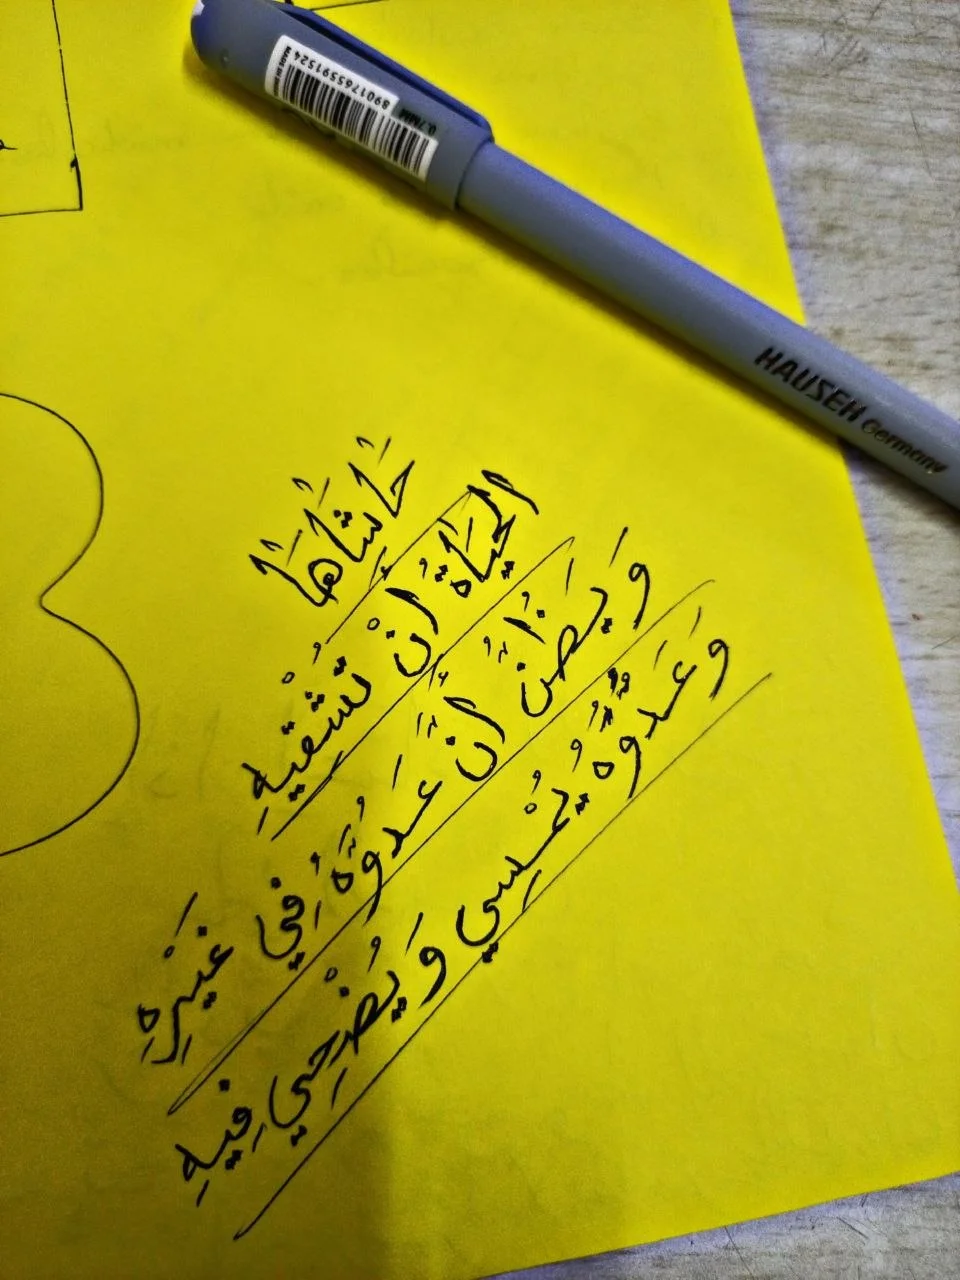 8901765591524
0.7MM
HAUSER Germany
حَاشَاهَا
الحَيَاةُ أَنْ تُشْقِيهِ
وَيَظُنُّ أَنَّ عَدُوَّهُ فِي غَيْرِهِ
وَعَدُوُّهُ يُمْسِي وَيُضْحِي فِيهِ